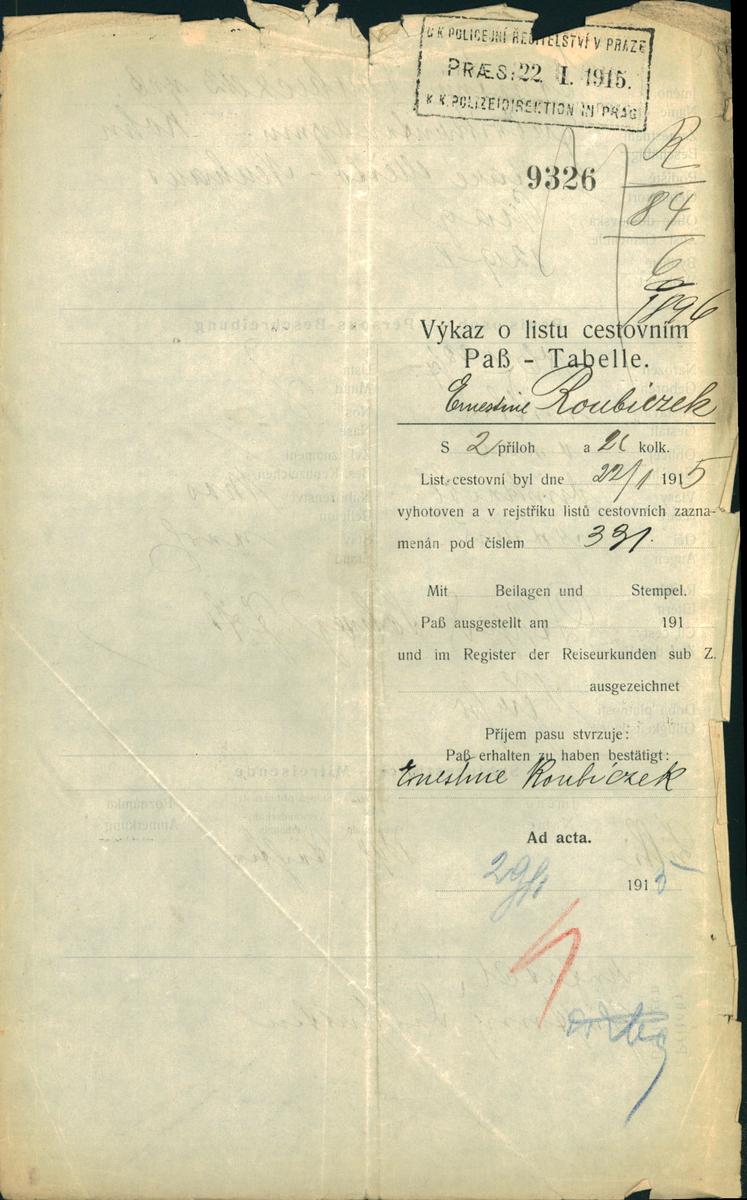 C. K. POLICEJNÍ ŘEDITELSTVÍ V PRAZE
PRÆS: 22. I. 1915.
K. K. POLIZEIDIREKTION IN PRAG
9326
R
84
6
1896
Výkaz o listu cestovním
Paß - Tabelle.
Ernestine Roubiczek
S 2 příloh a 2 kolk.
List cestovní byl dne 22/1 1915
vyhotoven a v rejstříku listů cestovních zazna-
menán pod číslem 331.
Mit Beilagen und Stempel.
Paß ausgestellt am 191
und im Register der Reiseurkunden sub Z.
ausgezeichnet
Příjem pasu stvrzuje:
Paß erhalten zu haben bestätigt:
Ernestine Roubiczek
Ad acta.
29/1 1915